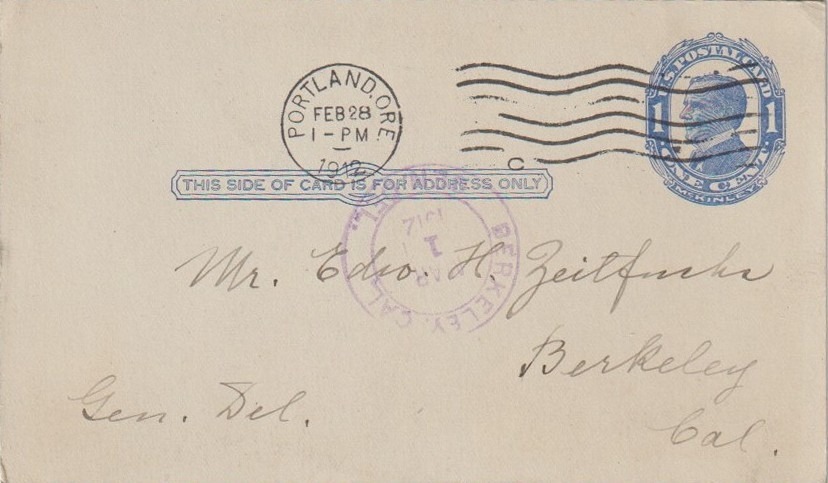 PORTLAND, ORE.
FEB 28
1 - PM
1912
C
U.S. POSTAL CARD
1 1
ONE CENT.
McKINLEY
THIS SIDE OF CARD IS FOR ADDRESS ONLY
BERKELEY, CAL.
MAR
1
1912
Mr. Edw. H. Zeitfuchs
Berkeley
Gen. Del.
Cal.